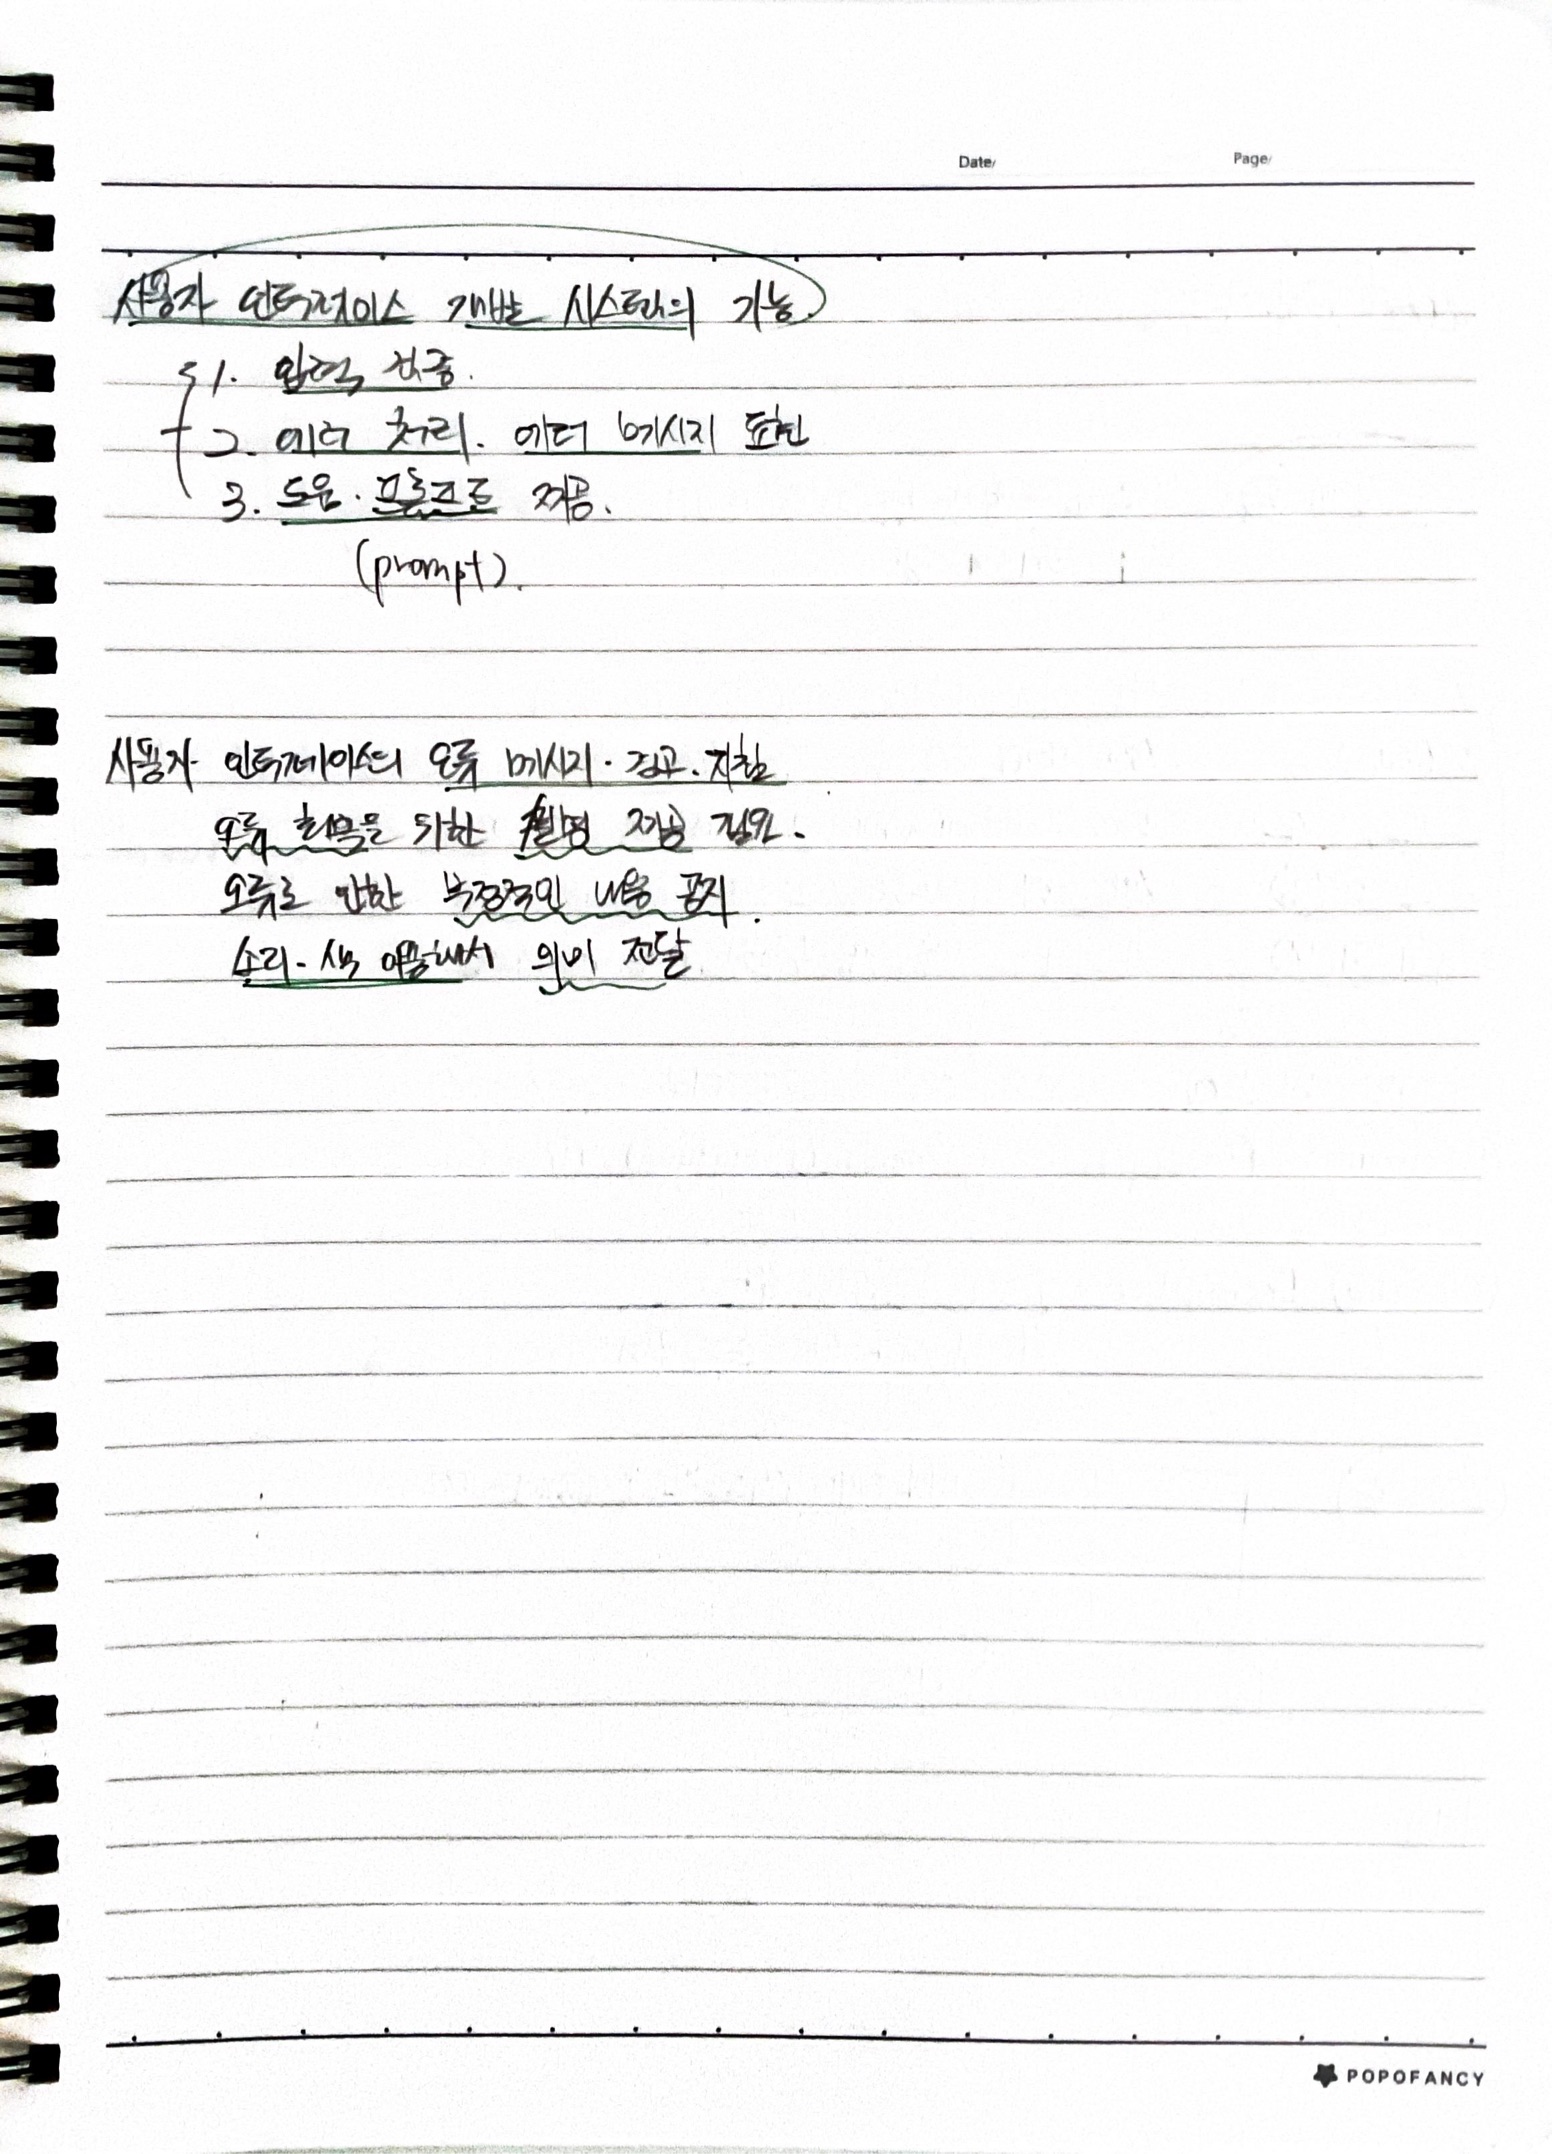 Date/ Page/
사용자 인터페이스 개발 시스템의 기능
1. 입력 검증.
2. 에러 처리. 에러 메시지 표현
3. 도움. 프롬프트 제공.
(prompt).
사용자 인터페이스의 오류 메시지. 경고. 지침
오류 회복을 위한 설명 제공 필요.
오류로 인한 부정적인 내용 공지.
소리. 색 이용해서 의미 전달
POPOFANCY